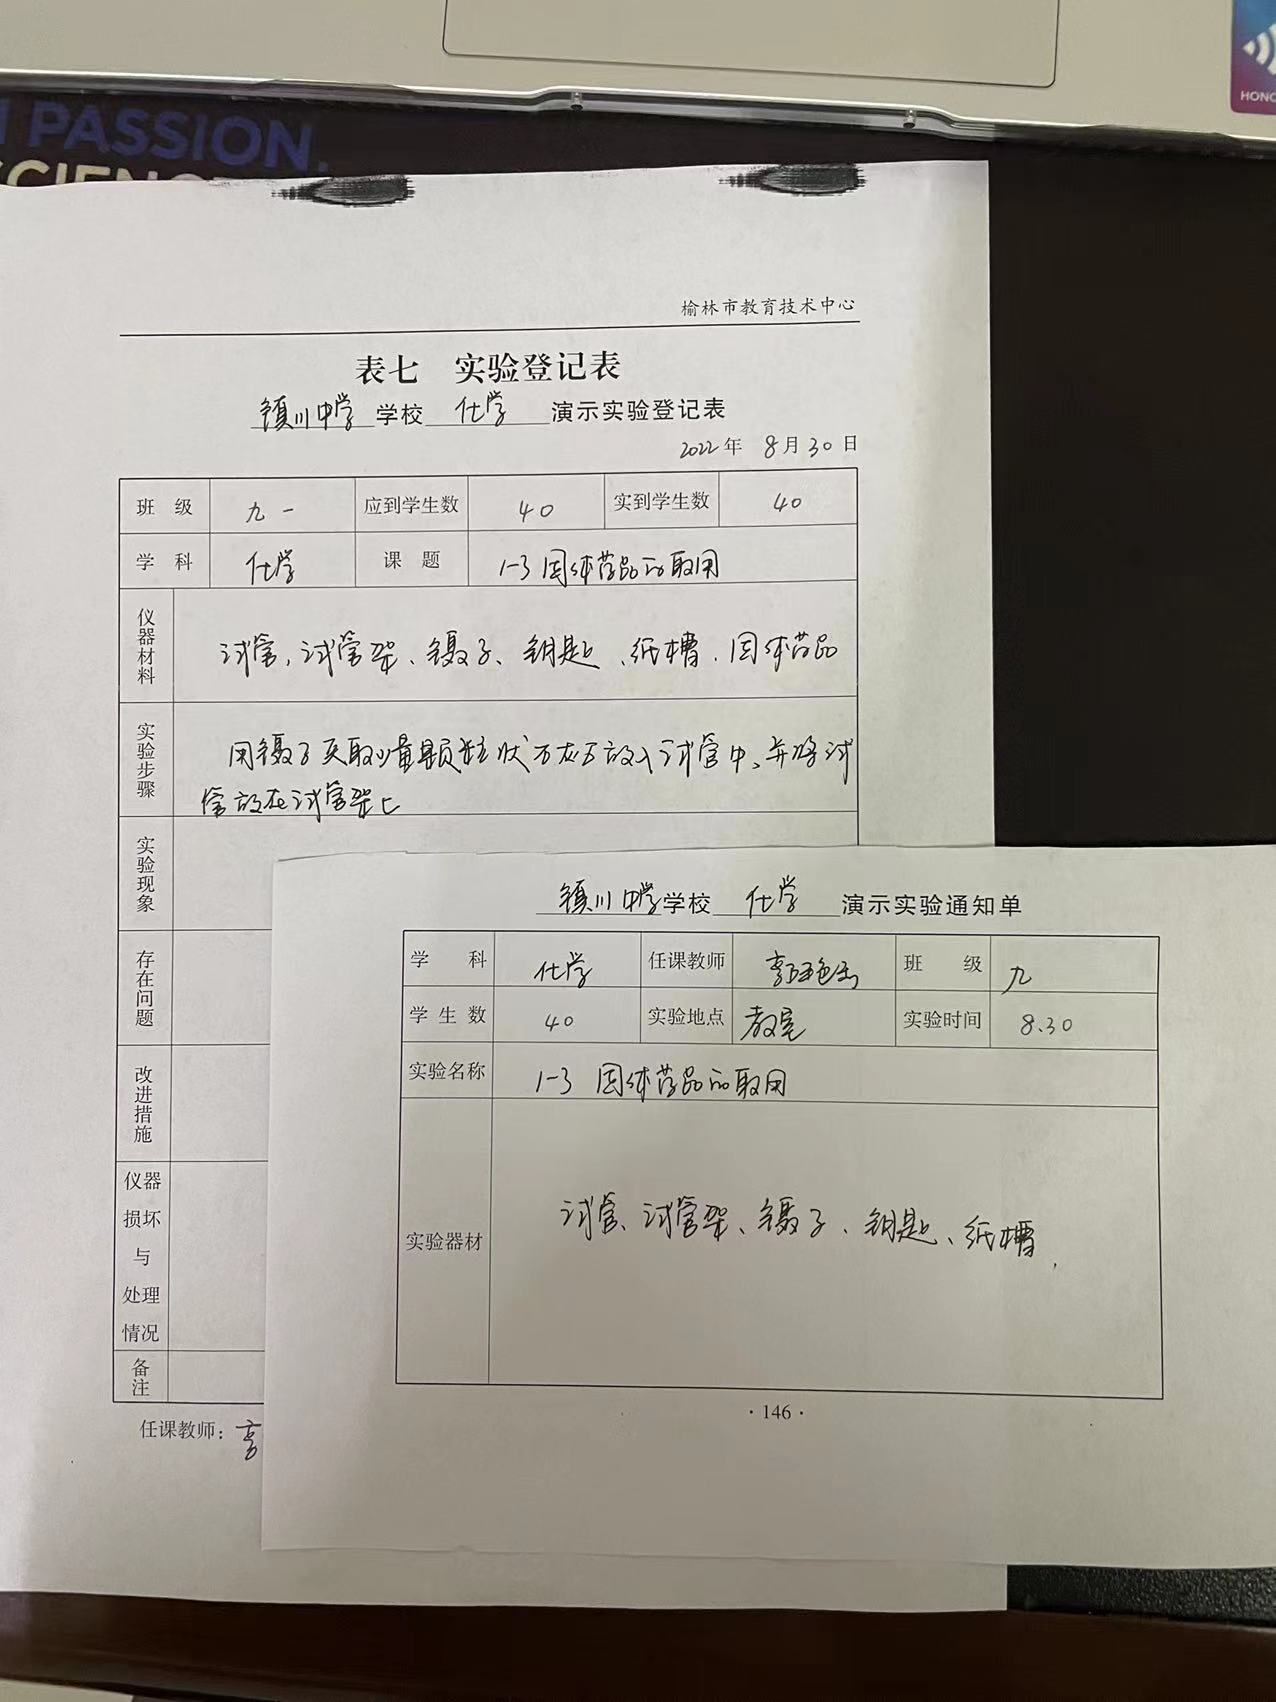 PASSION.
HONO
榆林市教育技术中心
表七 实验登记表
镇川中学 学校 化学 演示实验登记表
2022年 8月30日
班级 九一 应到学生数 40 实到学生数 40
学科 化学 课题 1-3 固体药品的取用
仪器材料 试管、试管架、镊子、钥匙、纸槽、固体药品
实验步骤 用镊子夹取少量颗粒状 放入试管中、并将试
管放在试管架上
实验现象
存在问题
改进措施
仪器
损坏
与
处理
情况
备注
任课教师:
镇川中学 学校 化学 演示实验通知单
学科 化学 任课教师 班级 九
学生数 40 实验地点 教室 实验时间 8.30
实验名称 1-3 固体药品的取用
实验器材 试管、试管架、镊子、钥匙、纸槽.
·146·